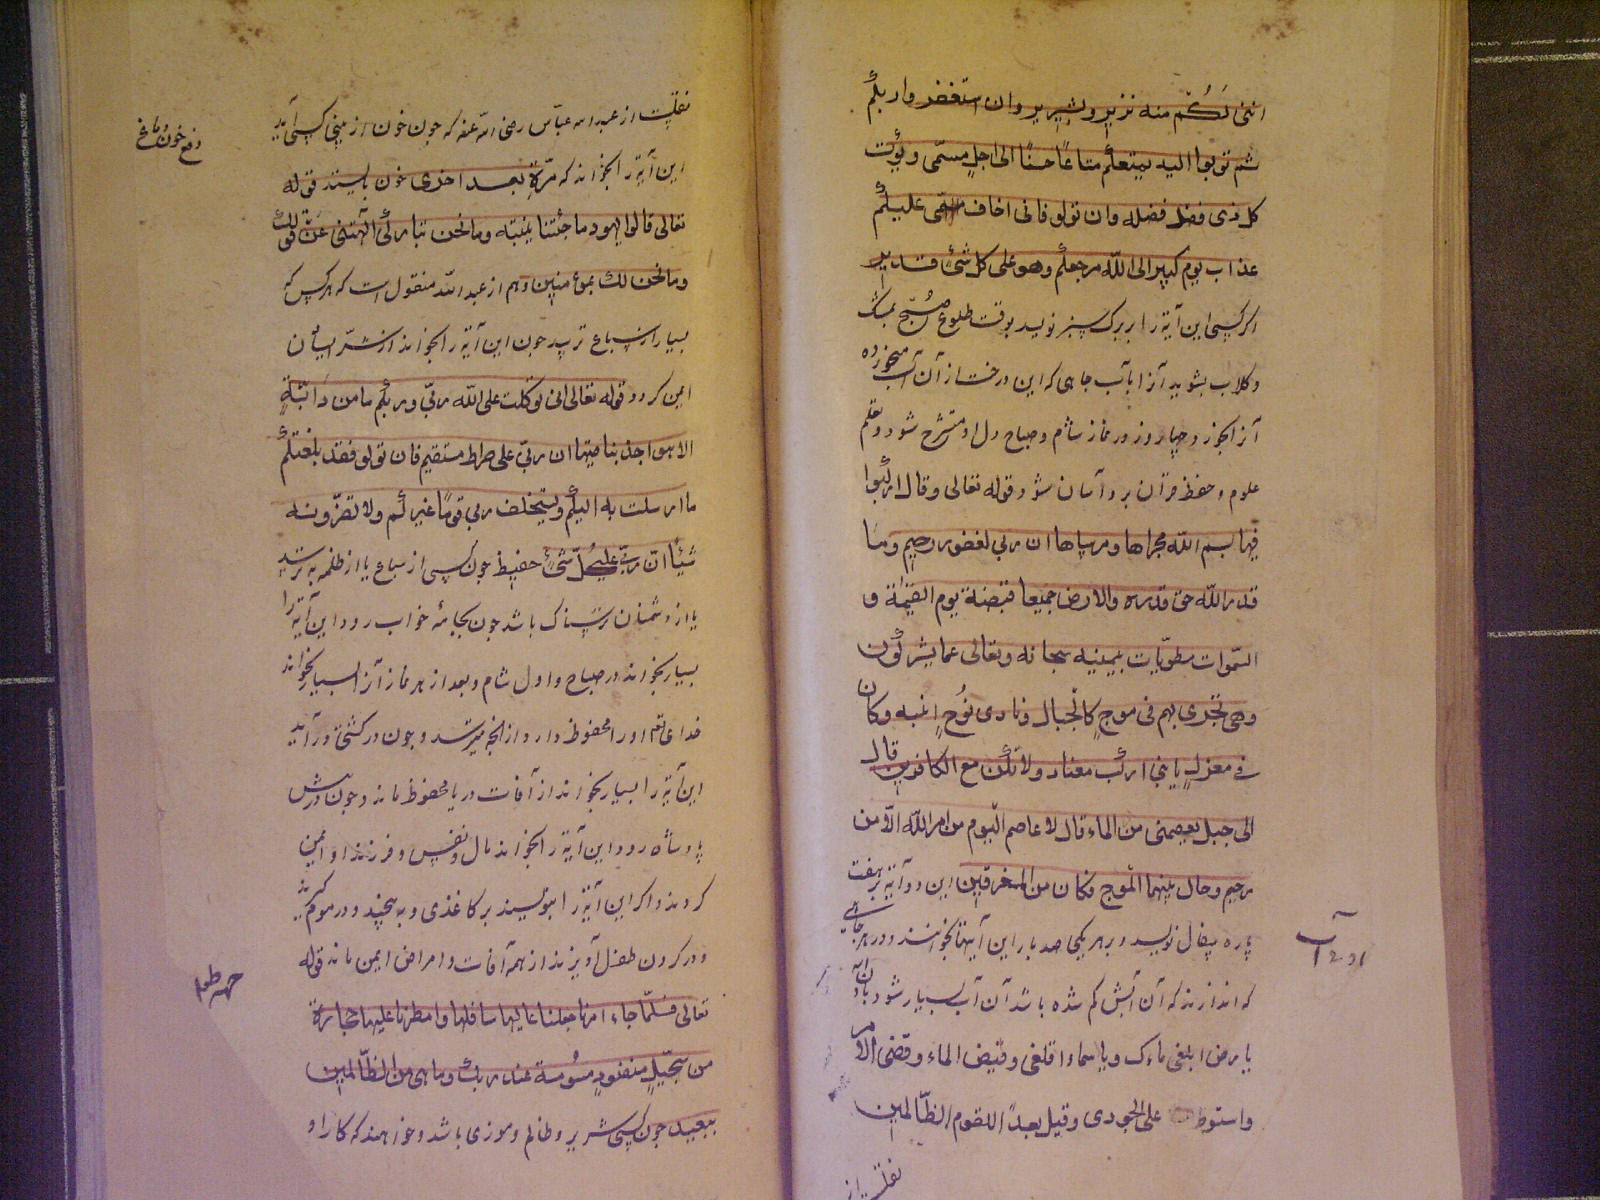 اننی لَكُم منه نذیر وبشیر وان استغفر وا ربكم
ثم توبوا الیه یمتعكم متاعًا حسنًا الی اجلٍ مسمّی ویؤت
كل ذی فضل فضله وان تولو فانی اخاف علیكم
عذاب یوم كبیر الی اللّه مرجعكم وهو علی كل شئ قدیر
اكر كسی این آیة را بر برک سبز نویسد بوقت طلوع صُبح بمشک
وكلاب بشوید آنرا بآب جاهی كه این درخت از آن آب میخورده
آنرا بخورد چهار روز در نماز شام وصباح دل او منشرح شود وتعلم
علوم و حفظ قرآن برو آسان شود قوله تعالی وقال اركبوا
فیها بسم اللّه مجراها ومرساها ان ربی لغفور رحیم ومَا
قدر اللّه حق قدره والارض جمیعا قبضته یوم القیٰمة و
السّموات مطویّات بیمینه سبحانه وتعالی عما یشركون
وهی تجری بهم فی موجٍ كالجبال ونادی نُوح ابنه وكان
فی معزلٍ یا بنی اركب معنا ولا تكن مع الكافرین قال
الی جبل یعصمنی من الماء قال لا عاصم الیوم من امر اللّه الّا من
رحم وحال بینهما الموج فكان من المغرقین این دو آیة بر هفت
پاره سفال نویسد و بر هر یكی صد بار این آیتها بخوانند و در هر جاهی
كه اندازند كه آن آبش كم شده باشد آن آب بسیار شود
یا ارض ابلعی ماءك ویا سماء اقلعی وغیض الماء وقضی الامر
واستوت علی الجودی وقیل بعدًا للقوم الظّالمین
نقلست از
نقلست از عبد الله عبّاس رضی اللّه عنه كه چون خون از بینی كسی آید
این آیة را بخواند كه مرّة بعد اخری خون بایستد قوله
تعالی قالوا یهود ما جئتنا ببینة وما نحن بتاركی آلهتنی عن قولك
وما نحن لك بمؤمنین وهم از عبد اللّه منقول است كه هر كس كه
بسیار از سباع ترسد چون این آیة را بخواند از شرّ ایشان
ایمن كردد قوله تعالی انی توكلت علی اللّه ربّی وربكم ما من دَابّةٍ
الا هو اخذ بناصیتها ان ربّی علی صراط مستقیم فان تولو فقد بلغتكم
ما ارسلت به الیكم ویستخلف ربی قومًا غیركم ولا تضرّونه
شیئًا انّ ربی علی كُلّ شئ حفیظ چون كسی از سباع یا از ظلمه بترسد
یا از دشمنان ترسناک باشد چون بجامه خواب رود این آیة را
بسیار بخواند در صباح و اول شام و بعد از هر نماز آنرا بسیار بخواند
خدای تعم او را محفوظ دارد از آنچه میترسد و چون در كشتی در آید
این آیة را بسیار بخواند از آفات دریا محفوظ ماند و چون در پیش
پادشاه رود این آیة را بخواند مال ونفس و فرزند او ایمن
كردند و اكر این آیة را بنویسند بر كاغذی و به پیچند و در موم كیرند
و در كردن طفل آویزند از همه آفات و امراض ایمن ماند قوله
تعالی فلمّا جاء امرنا جعلنا عالیها سافلها وامطرنا علیها حجارة
من سجّیلٍ منضودٍ مسُومة عند ربك وما هی من الظّالمین
ببعید چون كسی شریر و ظالم و موذی باشد و خواهند كه كار او
دفع خون دماغ